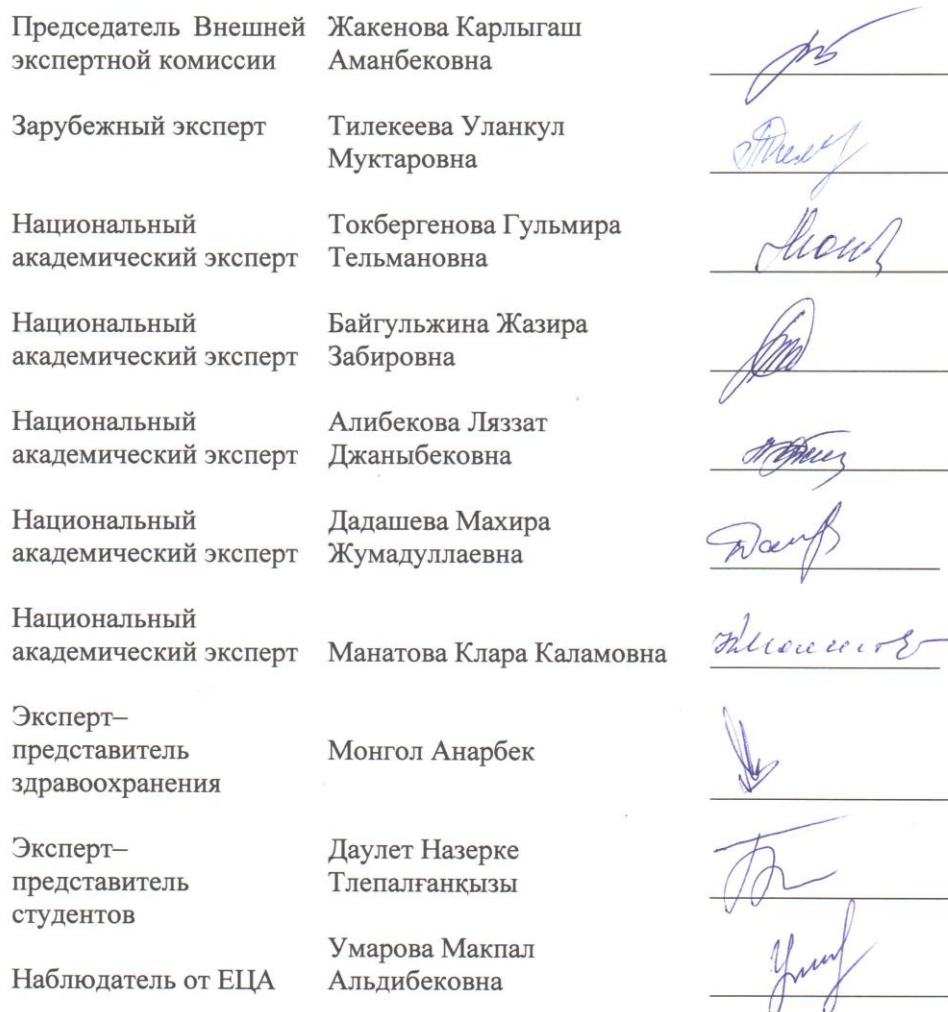 Председатель Внешней экспертной комиссии
Жакенова Карлыгаш Аманбековна
Зарубежный эксперт
Тилекеева Уланкул Муктаровна
Национальный академический эксперт
Токбергенова Гульмира Тельмановна
Национальный академический эксперт
Байгульжина Жазира Забировна
Национальный академический эксперт
Алибекова Ляззат Джаныбековна
Национальный академический эксперт
Дадашева Махира Жумадуллаевна
Национальный академический эксперт
Манатова Клара Каламовна
Эксперт–представитель здравоохранения
Монгол Анарбек
Эксперт–представитель студентов
Даулет Назерке Тлепалғанқызы
Наблюдатель от ЕЦА
Умарова Макпал Альдибековна